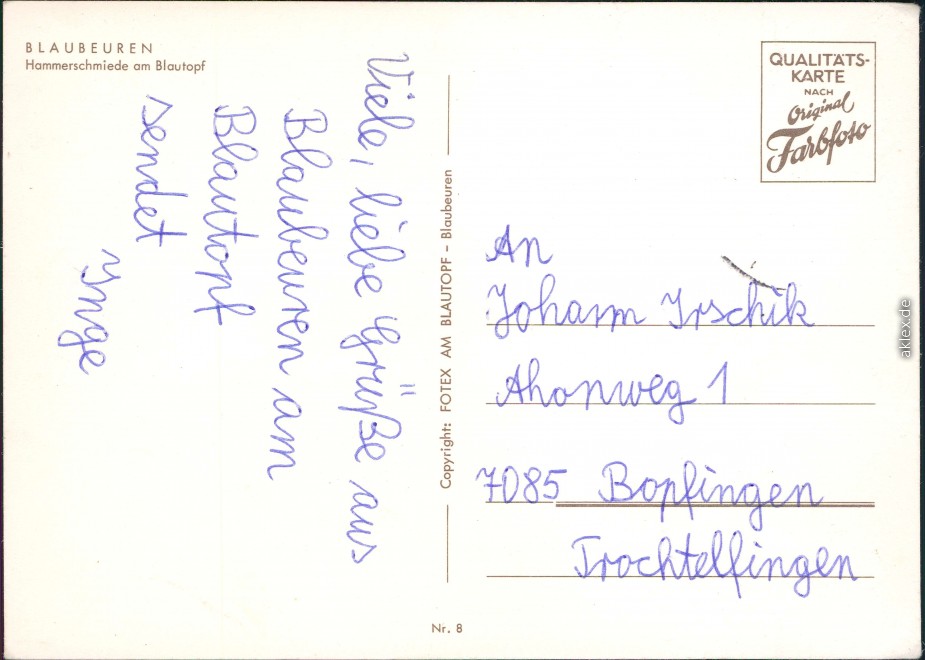 BLAUBEUREN
Hammerschmiede am Blautopf
Viele, liebe Grüße aus
Blaubeuren am
Blautopf
sendet
Inge
Copyright: FOTEX AM BLAUTOPF – Blaubeuren
QUALITÄTS-
KARTE
NACH
Original
Farbfoto
An
Johann Irschik
Ahornweg 1
7085 Bopfingen
Trochtelfingen
Nr. 8
aklex.de